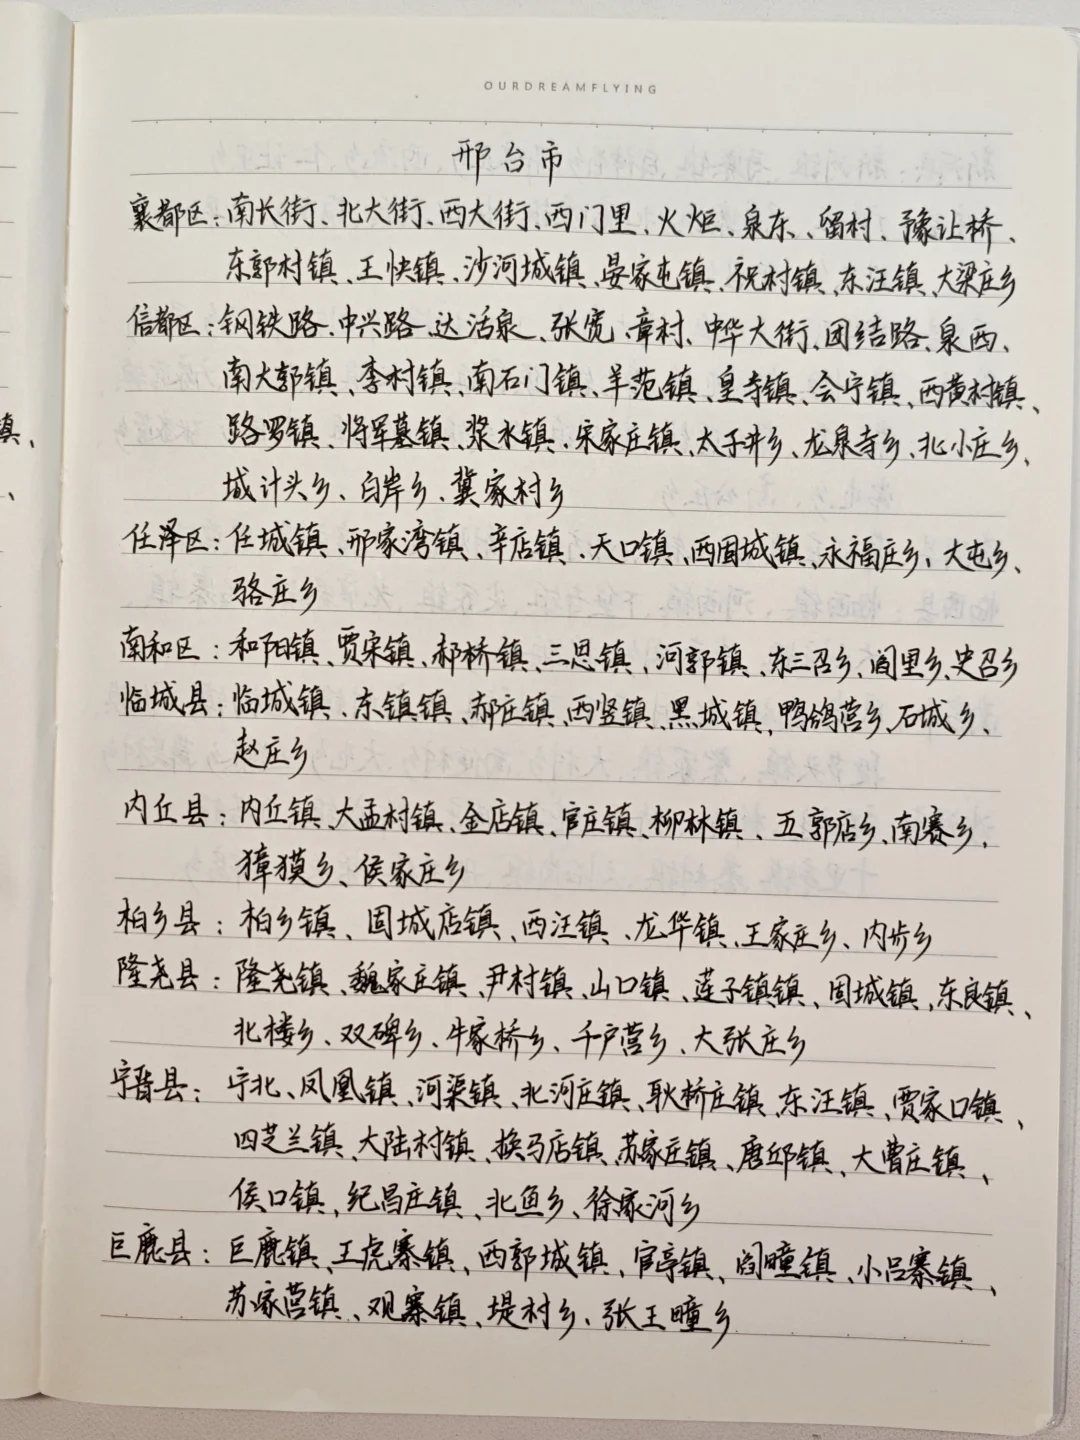 OURDREAMFLYING
邢台市
襄都区：南长街、北大街、西大街、西门里、火炬、泉东、留村、豫让桥、
东郭村镇、王快镇、沙河城镇、晏家屯镇、祝村镇、东汪镇、大梁庄乡
信都区：钢铁路、中兴路、达活泉、张宽、章村、中华大街、团结路、泉西、
南大郭镇、李村镇、南石门镇、羊范镇、皇寺镇、会宁镇、西黄村镇、
镇、
路罗镇、将军墓镇、浆水镇、宋家庄镇、太子井乡、龙泉寺乡、北小庄乡、
城计头乡、白岸乡、冀家村乡
任泽区：任城镇、邢家湾镇、辛店镇、天口镇、西固城镇、永福庄乡、大屯乡、
骆庄乡
南和区：和阳镇、贾宋镇、郝桥镇、三思镇、河郭镇、东三召乡、阎里乡、史召乡
临城县：临城镇、东镇镇、郝庄镇、西竖镇、黑城镇、鸭鸽营乡、石城乡、
赵庄乡
内丘县：内丘镇、大孟村镇、金店镇、官庄镇、柳林镇、五郭店乡、南赛乡、
獐獏乡、侯家庄乡
柏乡县：柏乡镇、固城店镇、西汪镇、龙华镇、王家庄乡、内步乡
隆尧县：隆尧镇、魏家庄镇、尹村镇、山口镇、莲子镇镇、固城镇、东良镇、
北楼乡、双碑乡、牛家桥乡、千户营乡、大张庄乡
宁晋县：宁北、凤凰镇、河渠镇、北河庄镇、耿桥庄镇、东汪镇、贾家口镇、
四芝兰镇、大陆村镇、换马店镇、苏家庄镇、唐邱镇、大曹庄镇、
侯口镇、纪昌庄镇、北鱼乡、徐家河乡
巨鹿县：巨鹿镇、王虎寨镇、西郭城镇、官亭镇、阎疃镇、小吕寨镇、
苏家营镇、观寨镇、堤村乡、张王疃乡